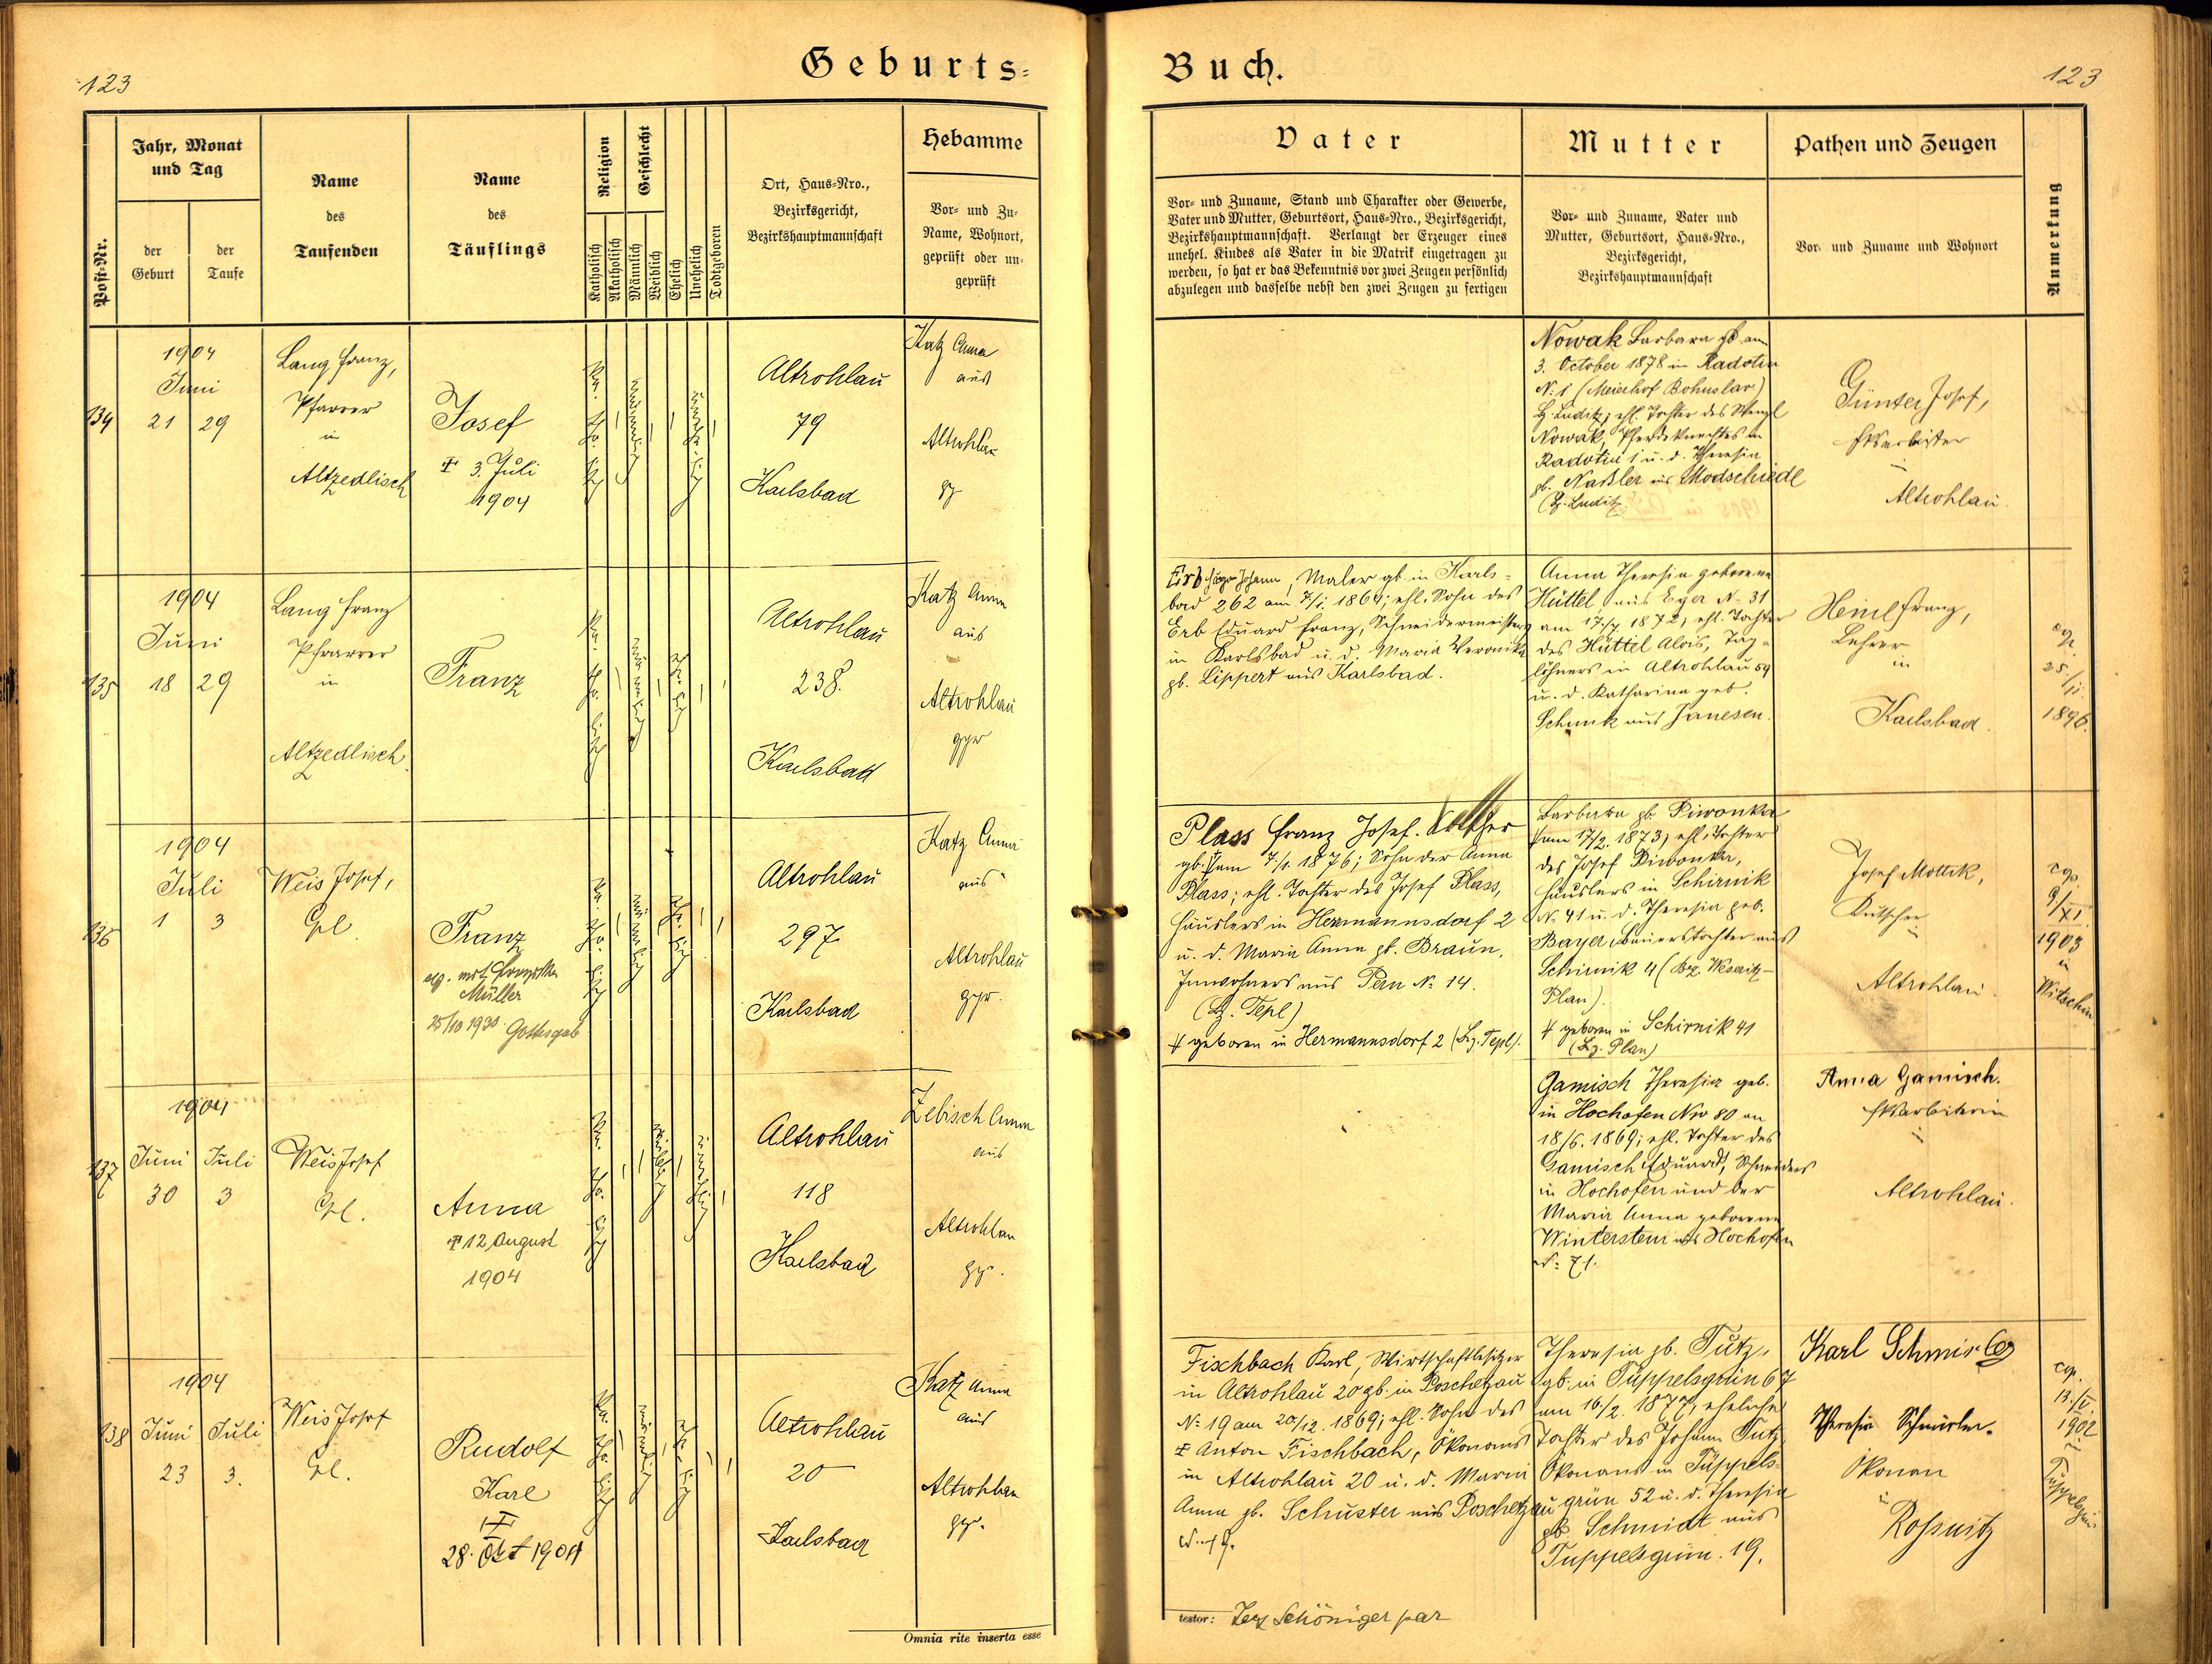 123
Geburts=
Buch.
123
Post-Nr.
Jahr, Monat
und Tag
der
Geburt
der
Taufe
Name
des
Taufenden
Name
des
Täuflings
Religion
Katholisch
Akatholisch
Geschlecht
Männlich
Weiblich
Ehelich
Unehelich
Todtgeboren
Ort, Haus=Nro.,
Bezirksgericht,
Bezirkshauptmannschaft
Hebamme
Vor= und Zu=
Name, Wohnort,
geprüft oder un=
geprüft
Vater
Vor= und Zuname, Stand und Charakter oder Gewerbe,
Vater und Mutter, Geburtsort, Haus=Nro., Bezirksgericht,
Bezirkshauptmannschaft. Verlangt der Erzeuger eines
unehel. Kindes als Vater in die Matrik eingetragen zu
werden, so hat er das Bekenntnis vor zwei Zeugen persönlich
abzulegen und dasselbe nebst den zwei Zeugen zu fertigen
Mutter
Vor= und Zuname, Vater und
Mutter, Geburtsort, Haus=Nro.,
Bezirksgericht,
Bezirkshauptmannschaft
Pathen und Zeugen
Vor= und Zuname und Wohnort
Anmerkung
134
1904
Juni
21 29
Lang Franz,
Pfarrer
in
Altzedlisch
Josef
† 3. Juli
1904
katholisch
männlich
unehelich
Altrohlau
79
Karlsbad
Katz Anna
aus
Altrohlau
Nowak Barbara gb. am
3. October 1878 in Radotin
N: 1 (Meierhof Bohuslav)
Bz. Luditz; ehl. Tochter des Wenzl
Nowak, Pferdeknechtes in
Radotin 1 u. d. Theresia
gb. Naßler aus Modschiedl
(Bz. Luditz
Günter Josef,
in
Altrohlau.
135
1904
Juni
18 29
Lang Franz
Pfarrer
in
Altzedlisch.
Franz
katholisch
männlich
ehelich
Altrohlau
238.
Karlsbad
Katz Anna
aus
Altrohlau
gpr
Erb Johann, Maler gb. in Karls=
bad 262 am 7/1. 1864; ehl. Sohn des
Erb Eduard Franz, Schneidermeisters
in Karlsbad u. d. Maria Veronika
gb. Lippert aus Karlsbad.
Anna Theresia geborene
Hüttel, aus Eger N: 31
am 17/7. 1872, ehl. Tochter
des Hüttel Alois, Tag=
löhners in Altrohlau 59
u. d. Katharina geb.
Schunk aus Janesen.
Heinl Franz,
Lehrer
in
Karlsbad.
cop.
25./11.
1896.
136
1904
Juli
1 3
Weis Josef,
Cpl.
Franz
Müller
25/10 1930 Gottesgab
katholisch
männlich
ehelich
Altrohlau
297
Karlsbad
Katz Anna
aus
Altrohlau
gpr.
Plass Franz Josef.
gb. # am 7/1. 1876; Sohn der Anna
Plass; ehl. Tochter des Josef Plass,
Häuslers in Hermannsdorf 2
u. d. Maria Anna gb. Braun,
Inwohners aus Pern N: 14.
(Bz. Tepl)
# geboren in Hermannsdorf 2 (Bz. Tepl).
Barbara gb. Piwonka
# am 17/2. 1873; ehl. Tochter
des Josef Piwonka,
Häuslers in Schirnik
N. 41 u. d. Theresia geb.
Bayer, Bauerstochter aus
Schirnik 4 (Bz. Weseritz-
Plan).
# geboren in Schirnik 41
(Bz. Plan)
Josef Mottik,
Kutscher
in
Altrohlau.
cop.
9/XI.
1903
in
Witschin
137
1904
Juni Juli
30 3
Weis Josef
Cpl.
Anna
† 12 August
1904
katholisch
weiblich
unehelich
Altrohlau
118
Karlsbad
Zebisch Anna
aus
Altrohlau
gpr.
Gamisch Theresia geb.
in Hochofen Nro 80 am
18/6. 1869; ehl. Tochter des
Gamisch Eduard, Schneiders
in Hochofen und der
Maria Anna geborene
Winterstein aus Hochofen
N: 71.
Anna Gamisch.
in
Altrohlau.
138
1904
Juni Juli
23 3.
Weis Josef
Cpl.
Rudolf
Karl
†
28. Okt 1904
katholisch
männlich
ehelich
Altrohlau
20
Karlsbad
Katz Anna
aus
Altrohlau
gpr.
Fischbach Karl, Wirtschaftsbesitzer
in Altrohlau 20 gb. in Poschetzau
N: 19 am 20/12. 1869; ehl. Sohn des
† Anton Fischbach, Ökonoms
in Altrohlau 20 u. d. Maria
Anna gb. Schuster aus Poschetzau
Theresia gb. Tutz,
gb. in Tüppelsgrün 67
am 16/2. 1877, eheliche
Tochter des Johann Tutz
Ökonoms in Tüppels-
grün 52 u. d. Theresia
gb. Schmidt aus
Tuppelsgrün. 19.
Karl Schmis
Theresia
Ökonom
in
Rossnitz
cop.
13./V.
1902
in
Tüppelsgrün
Omnia rite inserta esse
testor: Schöniger par